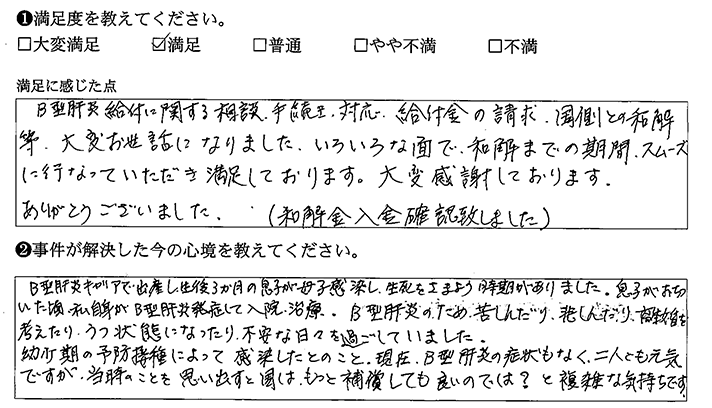 ❶満足度を教えてください。
□大変満足 ☑満足 □普通 □やや不満 □不満
満足に感じた点
B型肝炎給付に関する相談、手続き、対応、給付金の請求、国側との和解
等、大変お世話になりました。いろいろな面で、和解までの期間、スムーズ
に行なっていただき満足しております。大変感謝しております。
ありがとうございました。 (和解金入金確認致しました)
❷事件が解決した今の心境を教えてください。
B型肝炎キャリアで出産し生後3か月の息子が母子感染し、生死をさまよう時期がありました。息子がおちつ
いた頃、私自身がB型肝炎発症して入院、治療。B型肝炎のため、苦しんだり、悲しんだり、離婚を
考えたり、うつ状態になったり、不安な日々を過ごしていました。
幼少期の予防接種によって感染したとのこと。現在、B型肝炎の症状もなく、二人とも元気
ですが、当時のことを思い出すと国は、もっと補償しても良いのでは?と複雑な気持ちです。